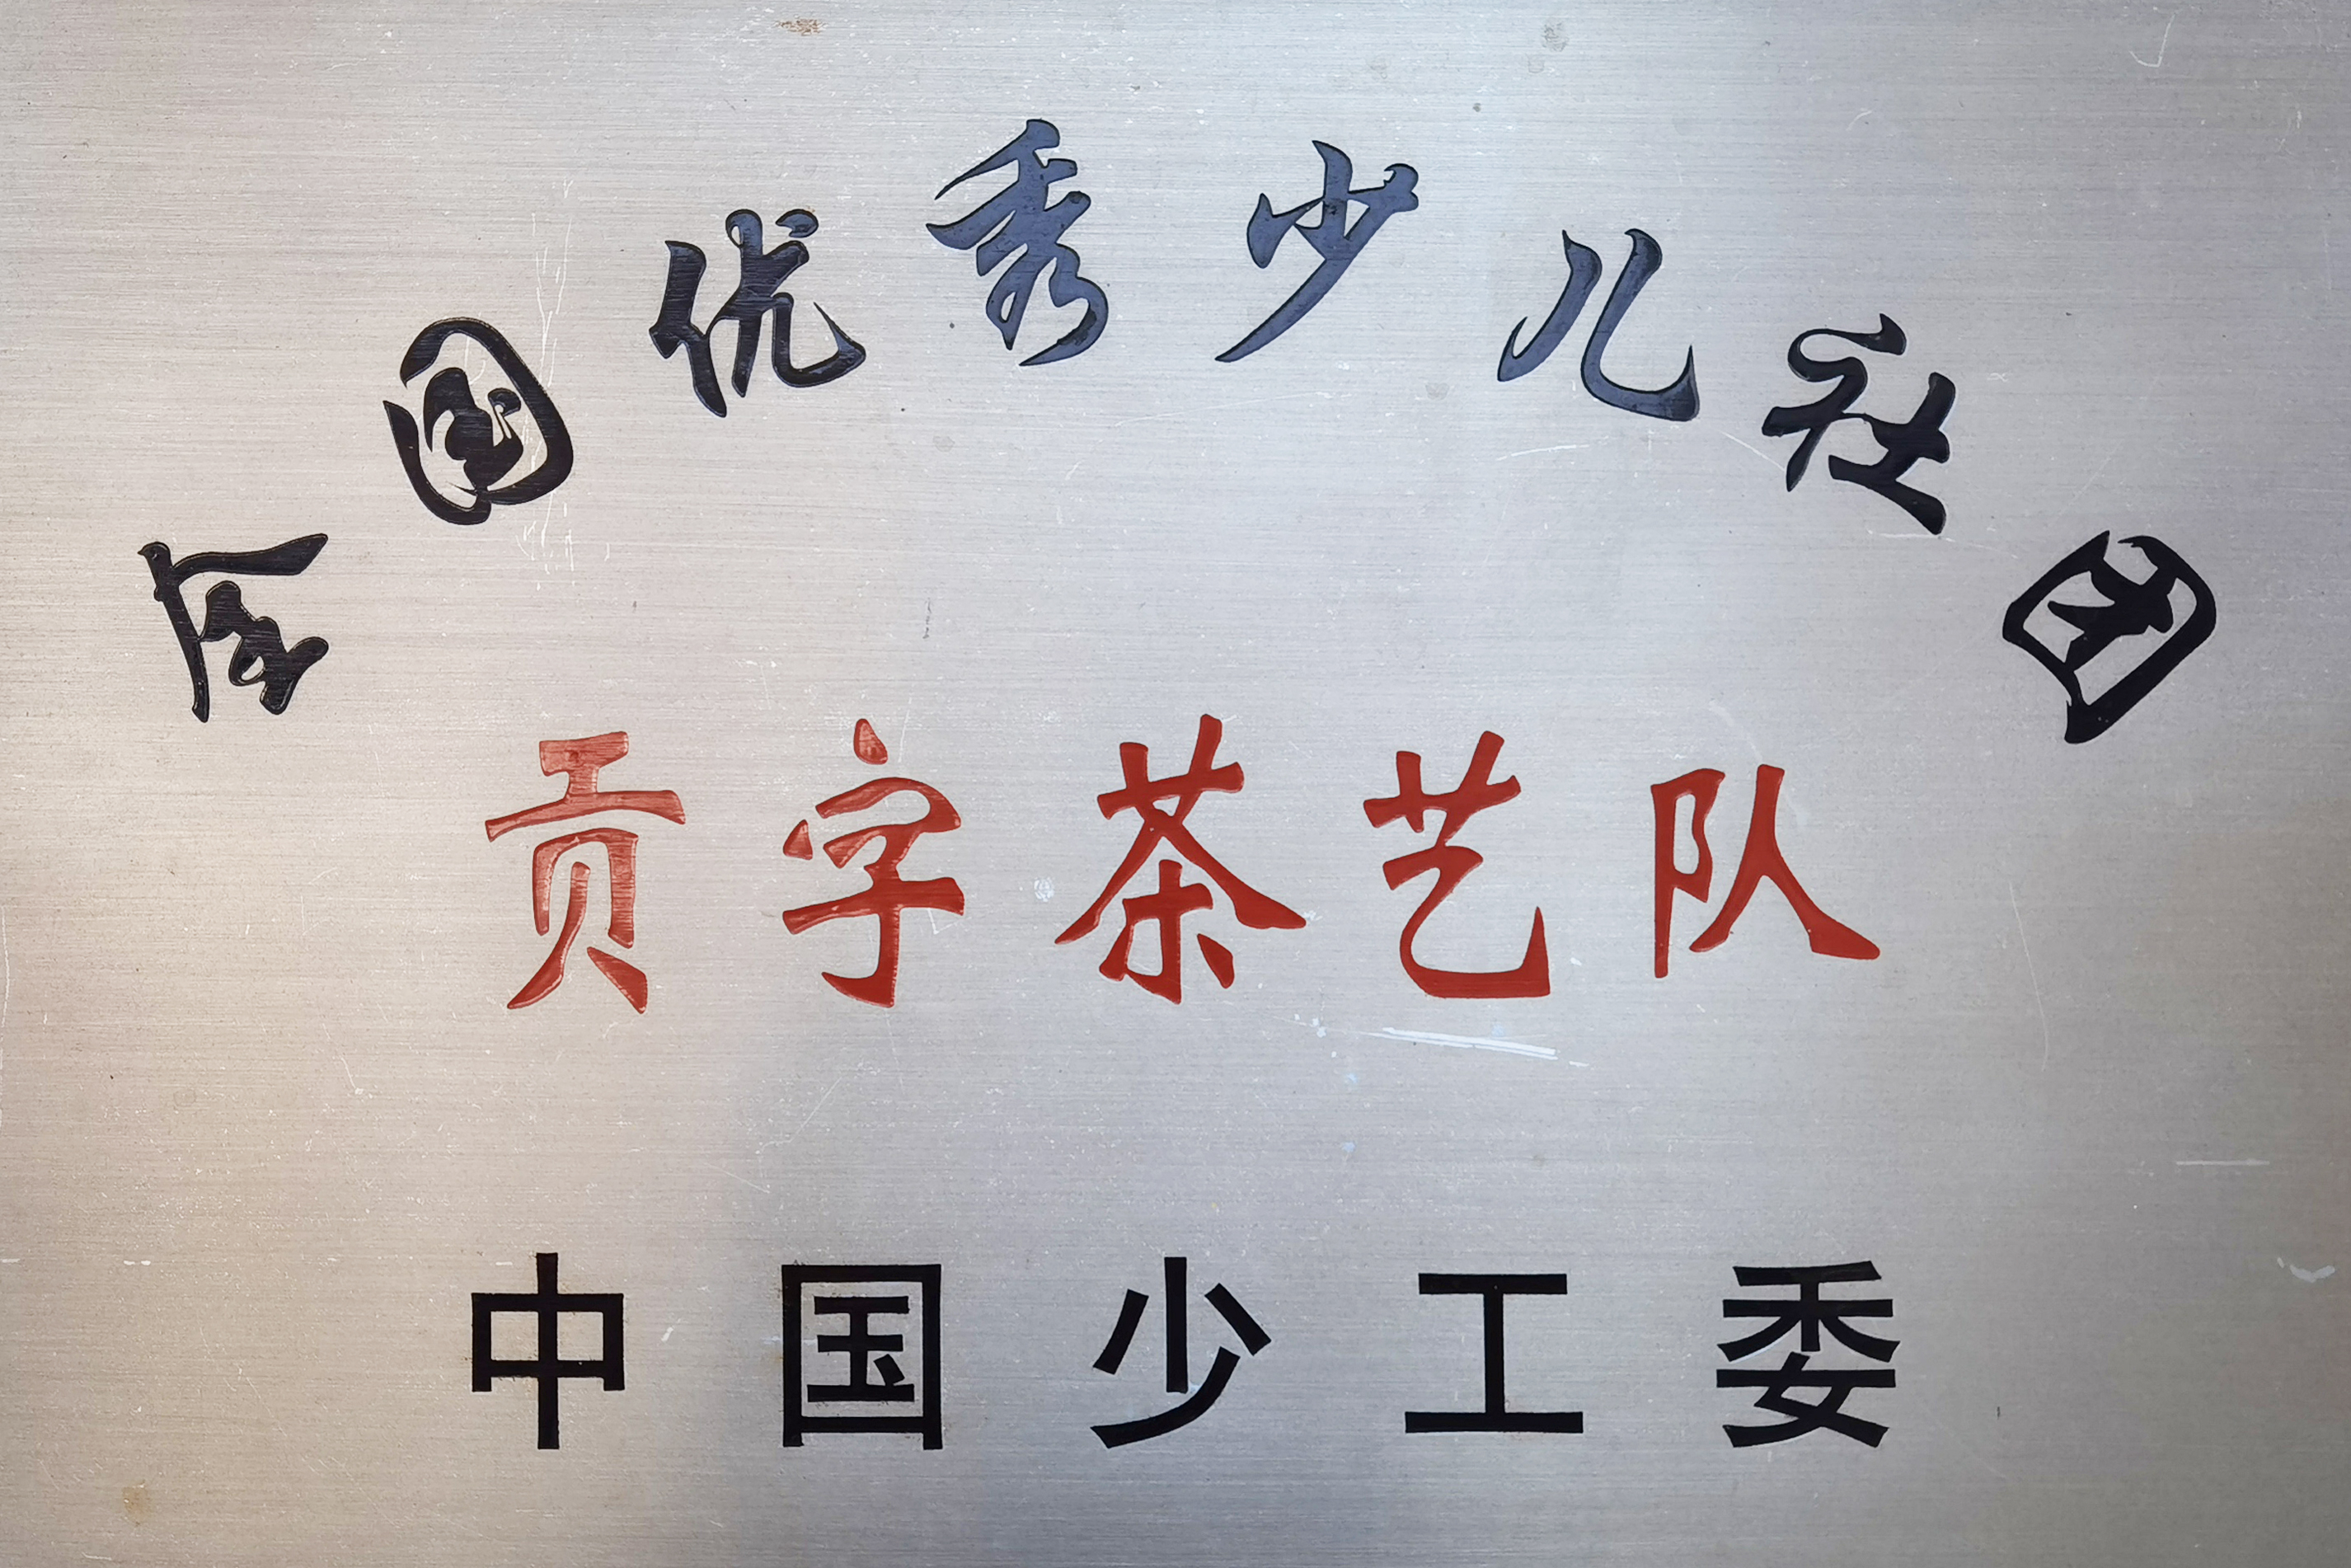 全国优秀少儿社团
贡字茶艺队
中国少工委